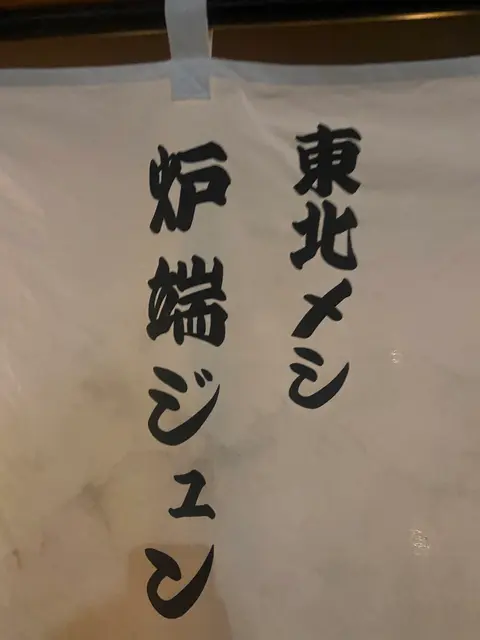 東北メシ
炉端ジュン